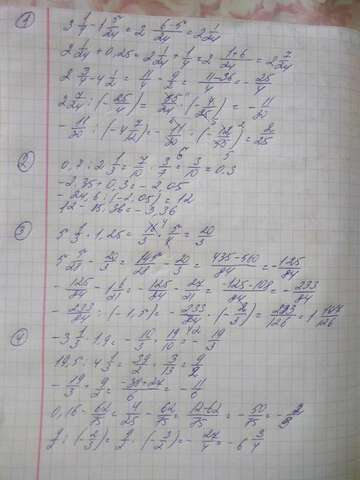 ①
3 1/4 - 1 5/24 = 2 (6-5)/24 = 2 1/24
2 1/24 + 0,25 = 2 1/24 + 1/4 = 2 (1+6)/24 = 2 7/24
2 3/4 - 4 1/2 = 11/4 - 9/2 =
2 7/24 : (-25/4) =
- 11/20 : (-4 7/12) = - 11/20 :
②
0,7 : 2 1/3 = 7/10 · 3/7 = 3/10 = 0,3
-2,35 + 0,3 = -2,05
-24,6 : (-2,05) = 12
12 - 15,36 = -3,36
③
5 1/3 · 1,25 = 16/3 · 5/4 = 20/3
5 5/28 - 20/3 = 145/28 - 20/3 = (435-560)/84 = -125/84
- 125/84 - 1 6/21 = - 125/84 - 27/21 = (-125-108)/84 = - 233/84
- 233/84 : (-1,5) = - 233/84 · (-2/3) = 233/126 = 1 107/126
④
-3 1/3 · 1,9 = - 10/3 · 19/10 = - 19/3
19,5 : 4 1/3 = 39/2 · 3/13 = 9/2
- 19/3 + 9/2 = (-38+27)/6 = - 11/6
0,16 - 62/75 = 4/25 - 62/75 = (12-62)/75 = - 50/75 = - 2/3
9/2 : (-2/3) = 9/2 · (-3/2) = - 27/4 = -6 3/4